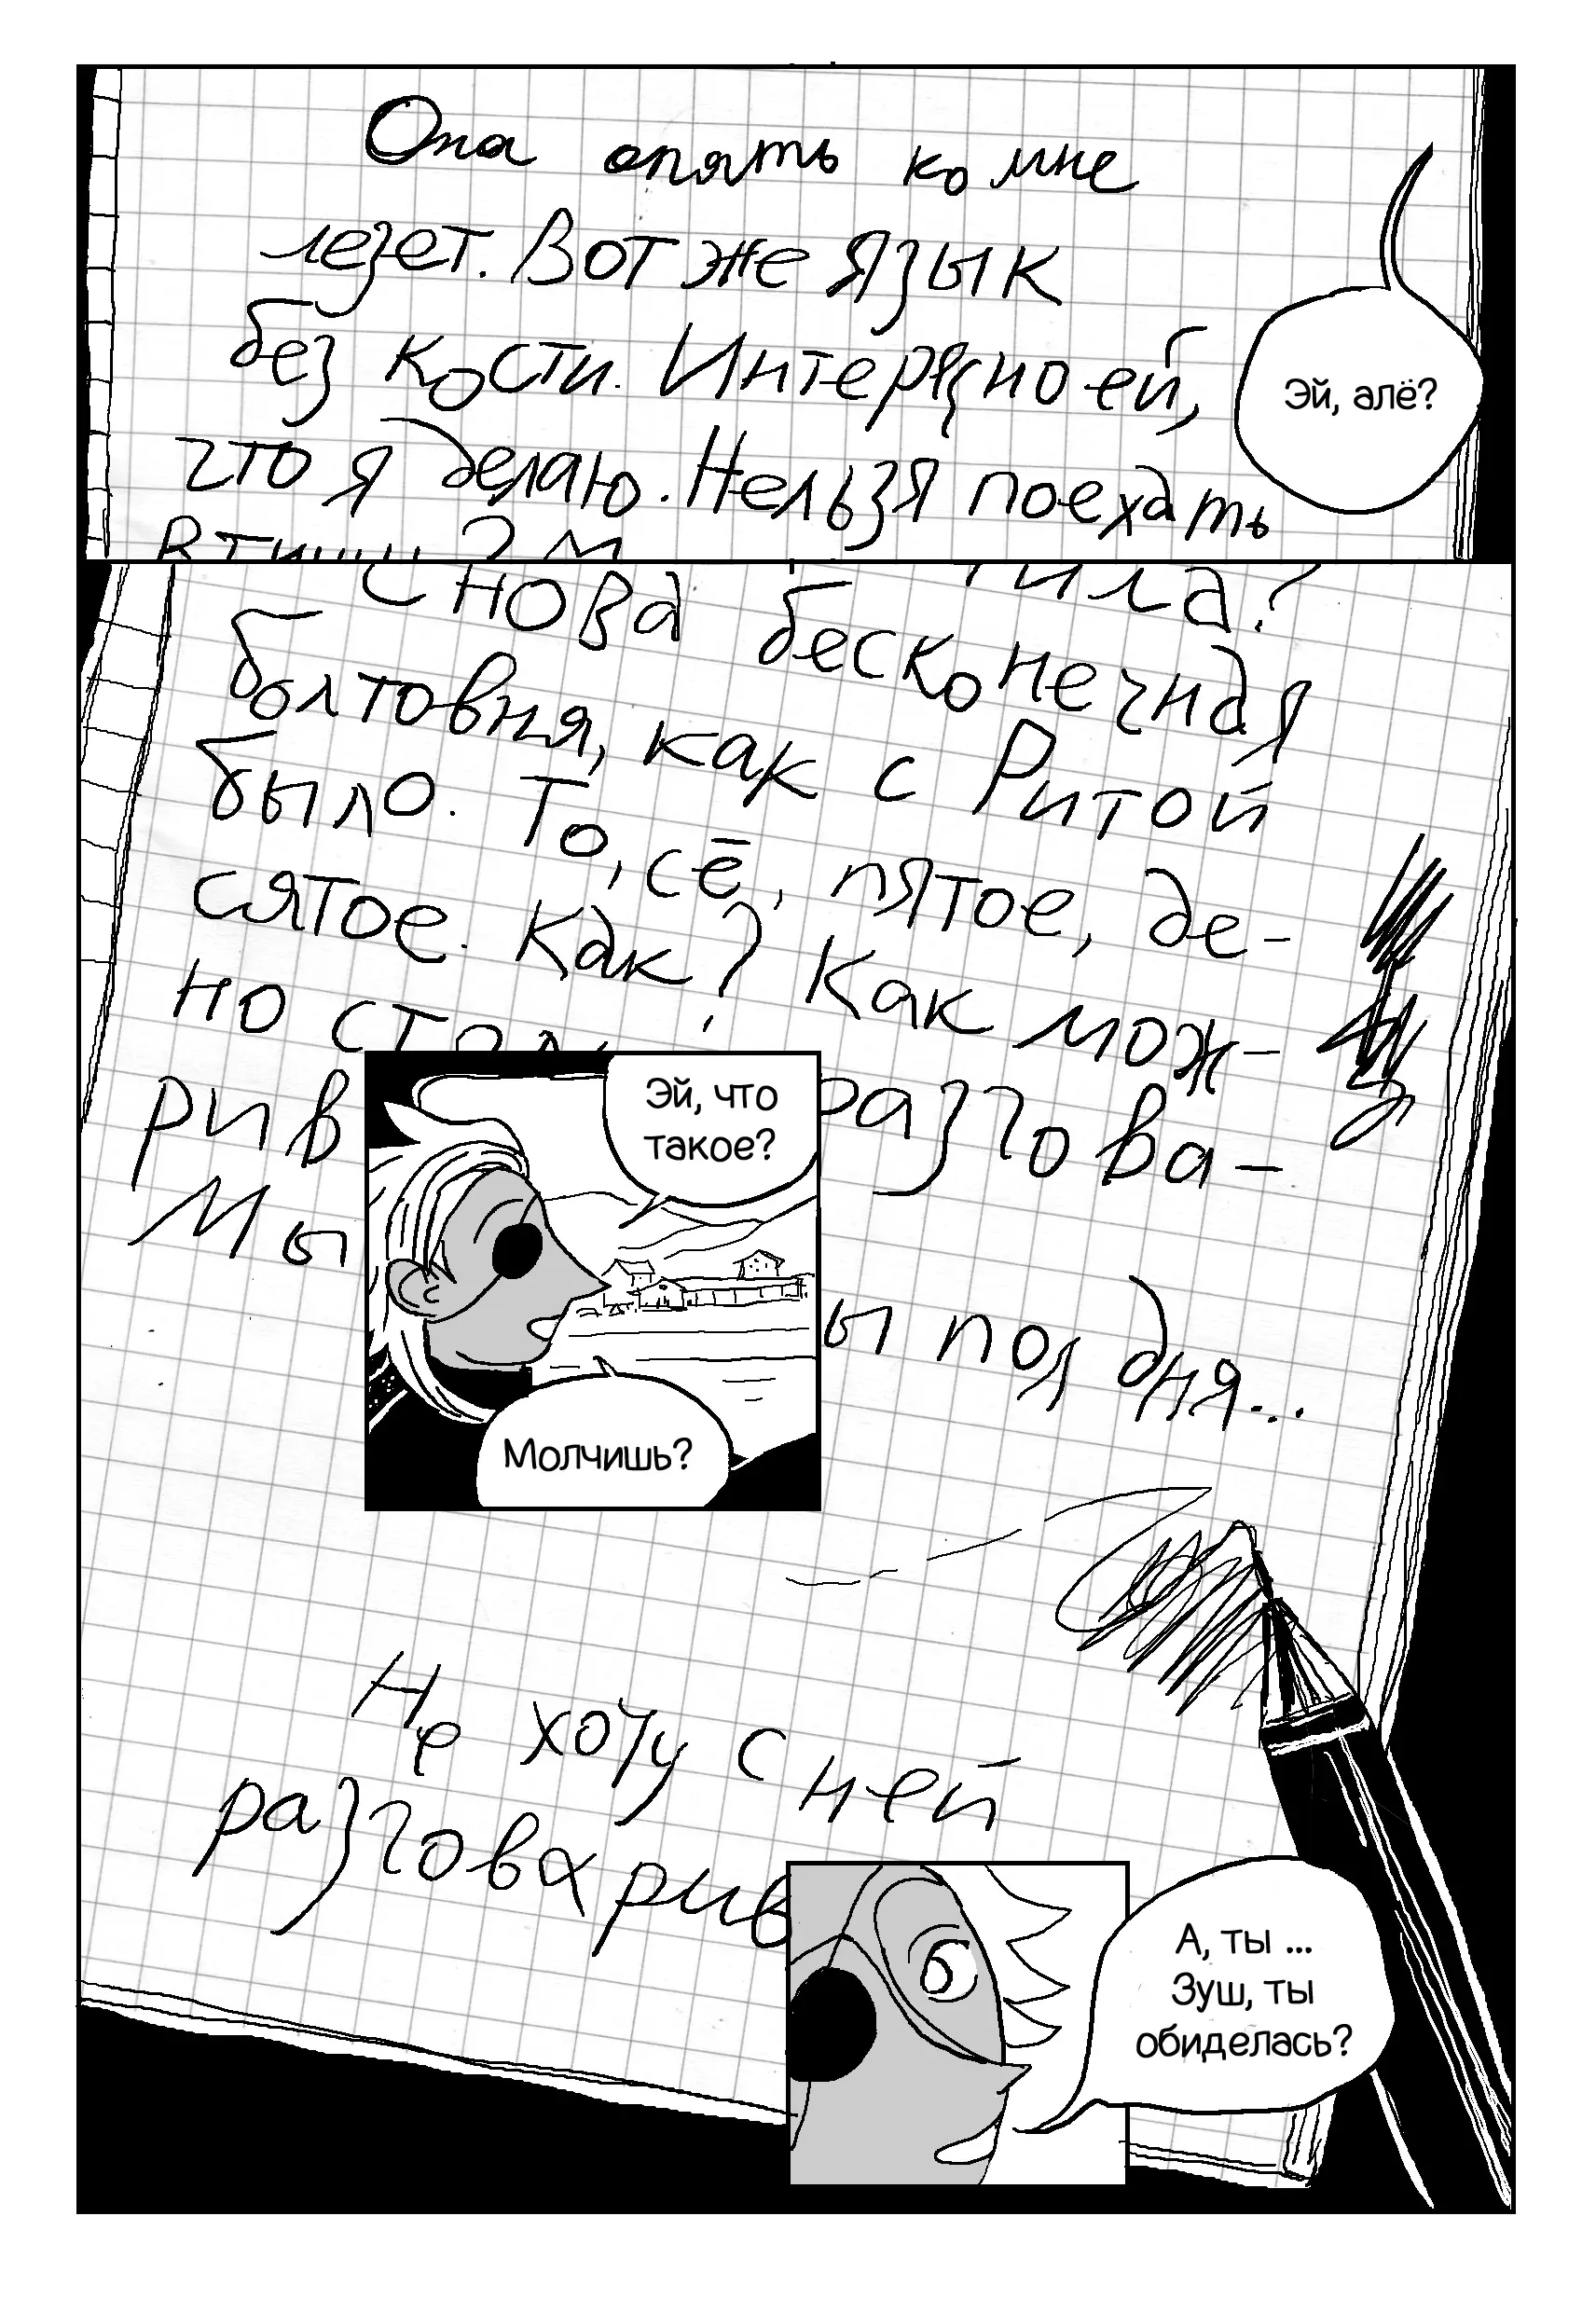 Она опять ко мне
лезет. Вот же язык
без кости. Интересно ей,
что я делаю. Нельзя поехать
в тиши?
Эй, алё?
снова бесконечная
болтовня, как с Ритой
было. То, сё, пятое, де-
сятое. Как? Как мож-
но
рив разгова-
Мы
ы пол дня...
Эй, что
такое?
Молчишь?
Не хочу с ней
разговарив
А, ты ...
Зуш, ты
обиделась?